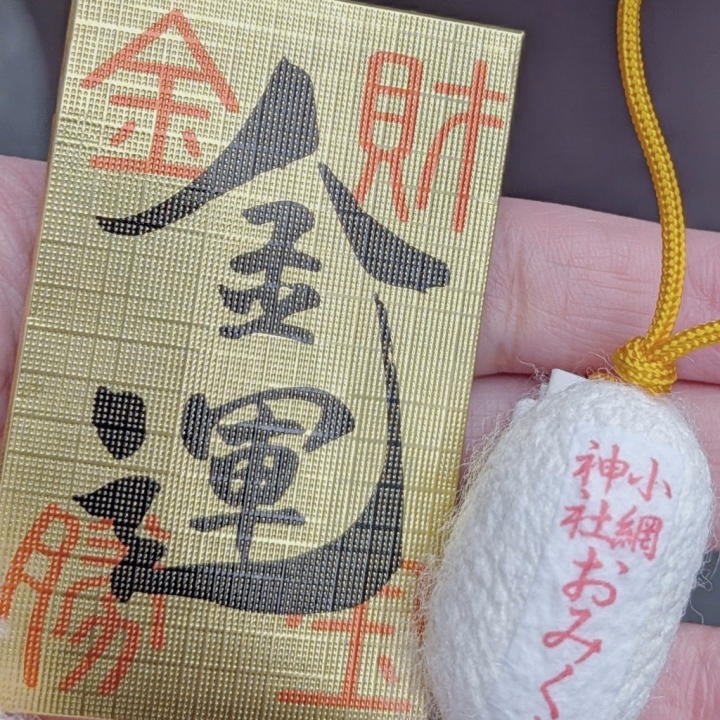 金
財
金運
勝
小網
神社
おみく